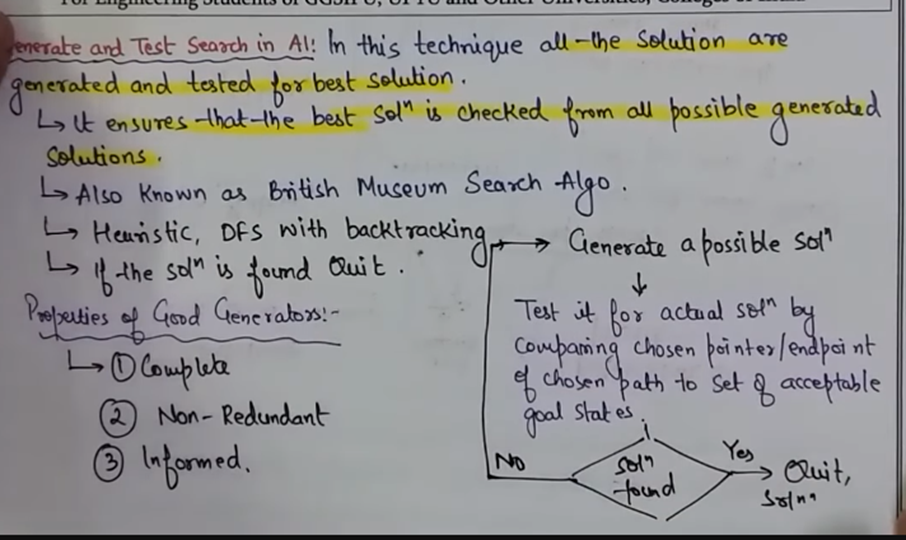 For Engineering Students of GGSIPU, UPTU and Other Universities, Colleges of India
enerate and Test Search in AI: In this technique all the solution are
generated and tested for best solution.
↳ It ensures that the best Solⁿ is checked from all possible generated
Solutions.
↳ Also known as British Museum Search Algo.
↳ Heuristic, DFS with backtracking
↳ If the solⁿ is found Quit.
Properties of Good Generators:-
↳ ① Complete
② Non-Redundant
③ Informed.
→ Generate a possible solⁿ
↓
Test it for actual solⁿ by
comparing chosen pointer/endpoint
of chosen path to set of acceptable
goal states.
solⁿ
found
No
Yes
→ Quit,
Solⁿ